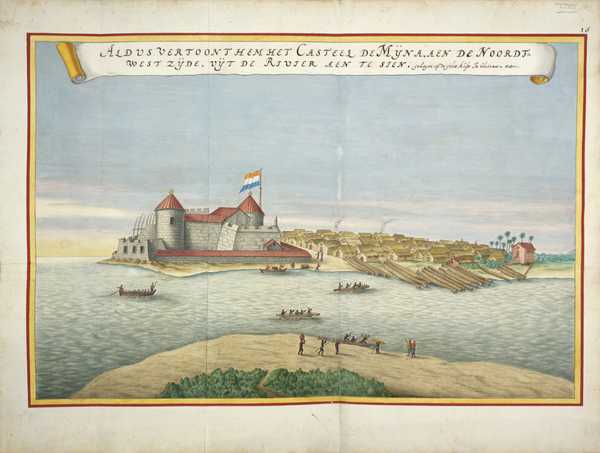 16
ALDUS VERTOONT HEM HET CASTEEL DE MŸNA, AEN DE NOORDT-
WEST ZŸDE, VŸT DE RIVIER AEN TE SIEN.